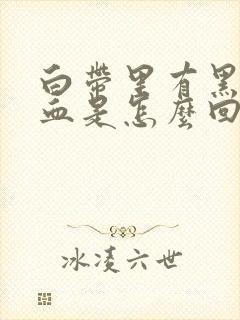 白带里有黑
血是怎麽回
冰凌六世